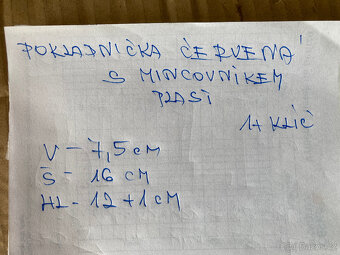 POKLADNIČKA ČERVENÁ
S MINCOVNÍKEM
PLAST
1+ KLÍČ
V - 7,5 CM
Š - 16 CM
HL - 12 + 1 CM